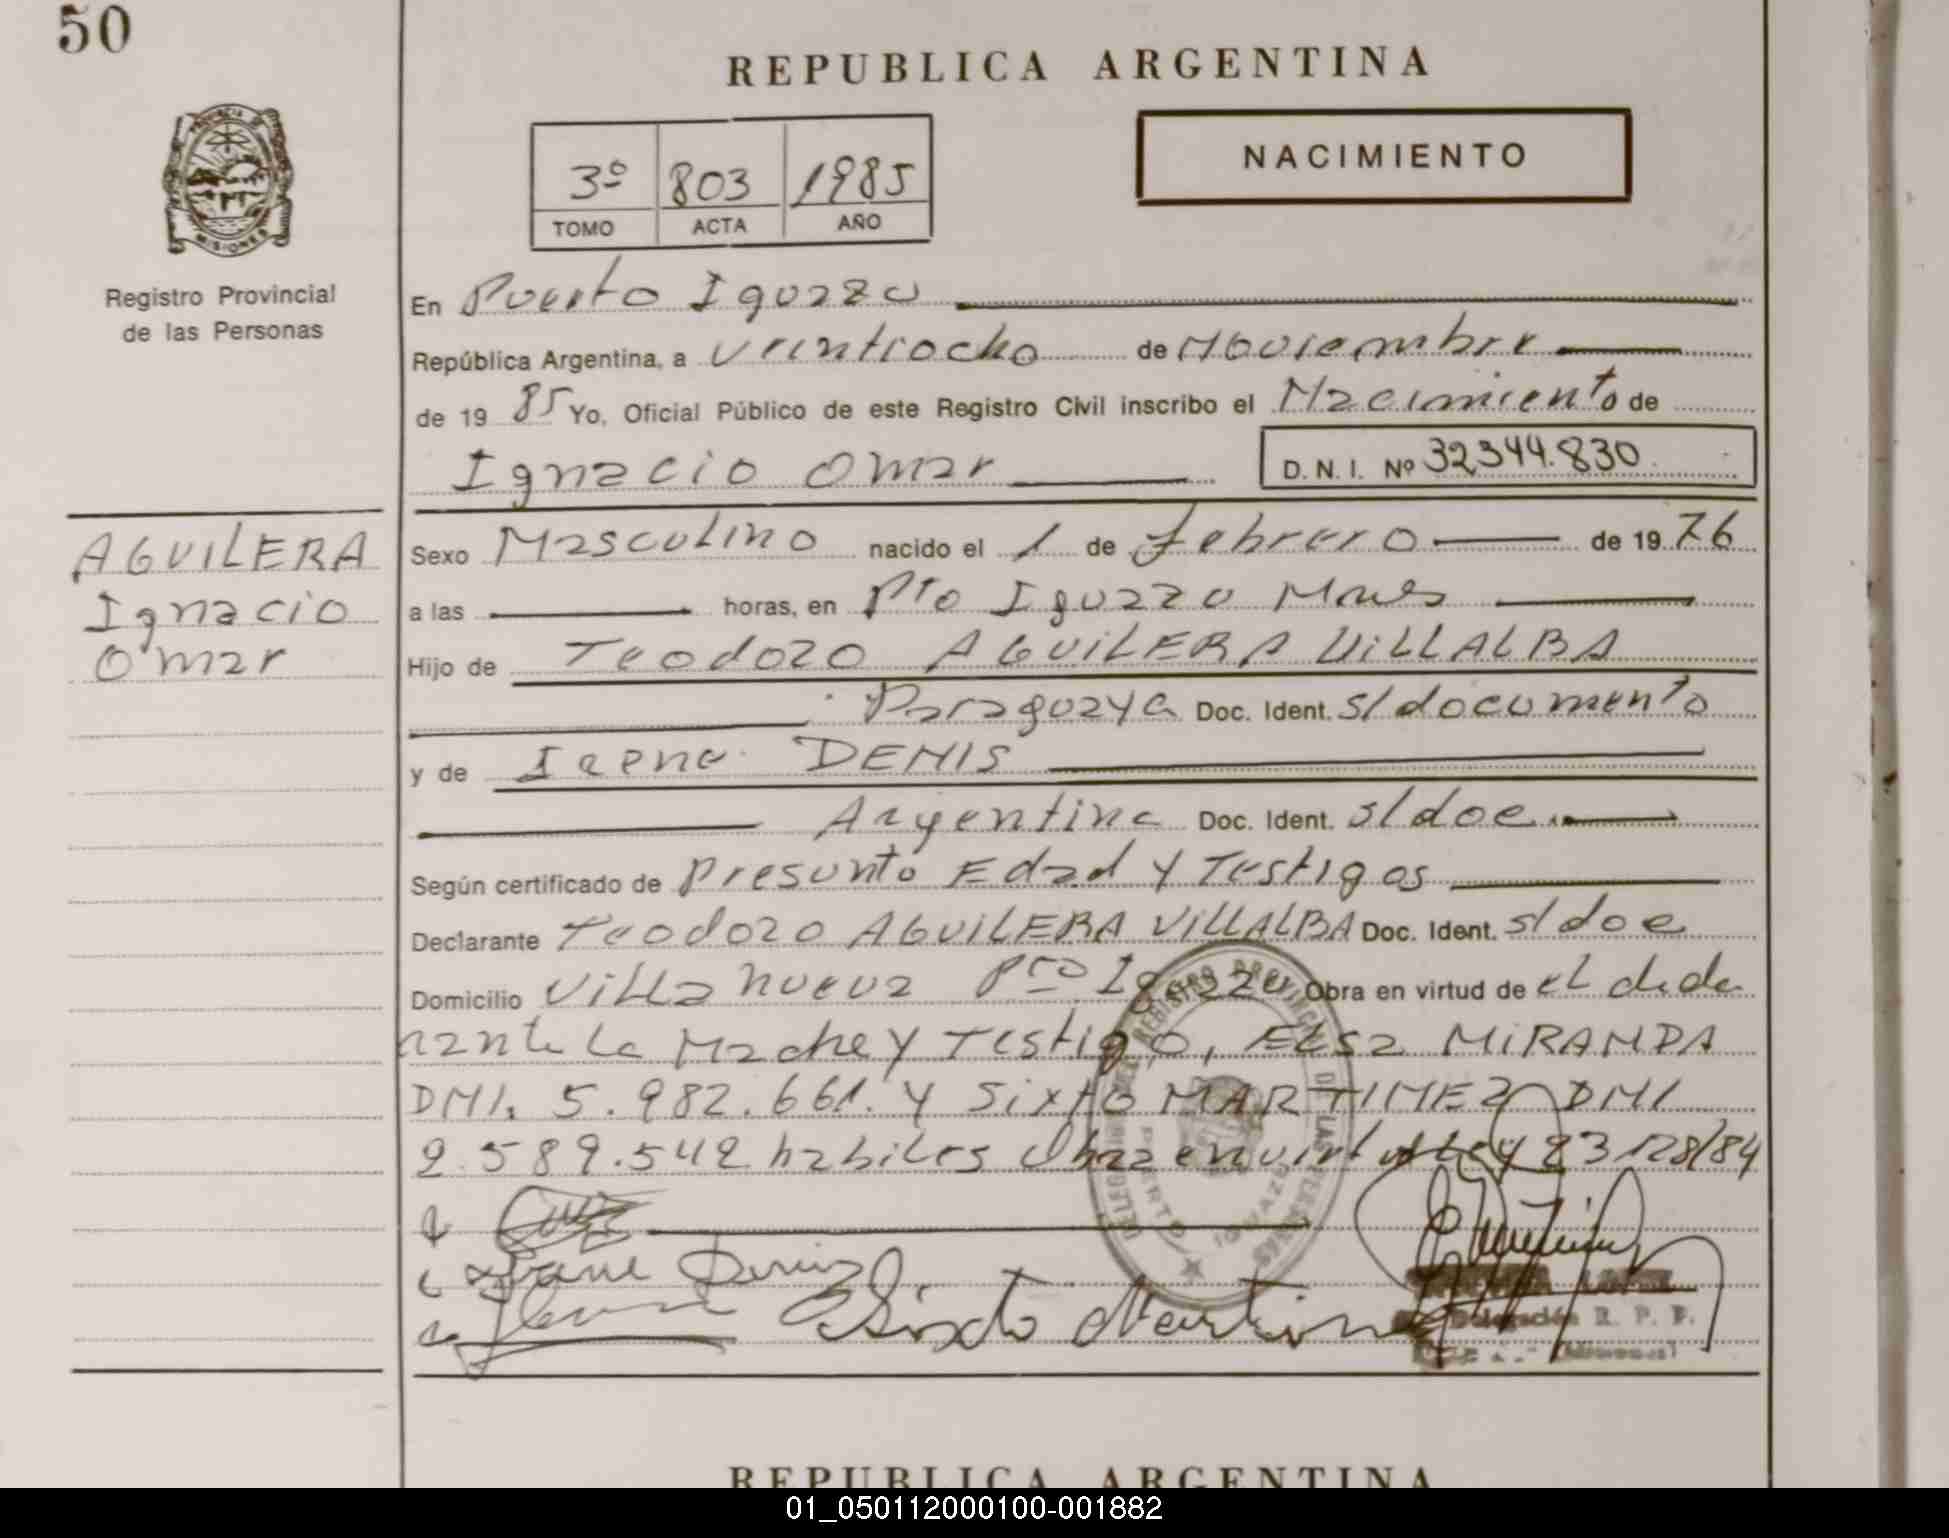 50
REPUBLICA ARGENTINA
PROVINCIA DE
MISIONES
Registro Provincial
de las Personas
3º 803 1985
TOMO ACTA AÑO
NACIMIENTO
En Puerto Iguazu
República Argentina, a veintiocho de Noviembre
de 19 85 Yo, Oficial Público de este Registro Civil inscribo el Nacimiento de
Ignacio Omar D. N. I. Nº 32344.830
AGUILERA
Ignacio
Omar
Sexo Masculino nacido el 1 de febrero de 19 76
a las horas, en Pto Iguazu Mnes
Hijo de Teodozo AGUILERA VILLALBA
Paraguaya Doc. Ident. s/documento
y de Irene DENIS
Argentina Doc. Ident. s/doc
Según certificado de Presunto Edad y Testigos
Declarante Teodozo AGUILERA VILLALBA Doc. Ident. s/doc
Domicilio Villa nueva Pto Iguazu Obra en virtud de el decla
rante la Madre y Testigo, Elsa MIRANDA
DNI. 5.982.661. y Sixto MARTINEZ DNI
2.589.542 habiles Obra en virtud Ley 23128/84
Sixto Martin
Delegación R. P. P.
(Misiones)
REGISTRO PROVINCIAL DE LAS PERSONAS
PUERTO IGUAZU
REPUBLICA ARGENTINA
01_050112000100-001882